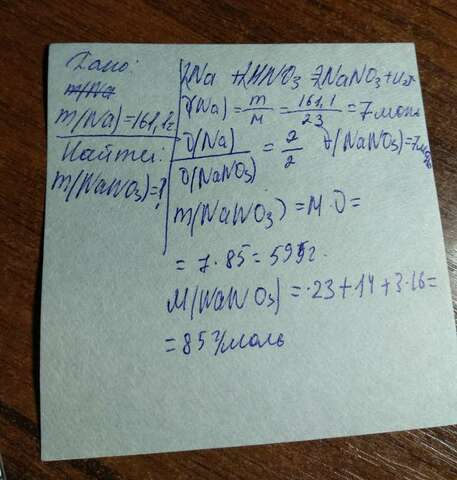 Дано:
m(Na)
m(Na)=161,1г
Найти:
m(NaNO₃)=?
2Na +2HNO₃=2NaNO₃+H₂↑
ν(Na)=m/M=161,1/23=7моль
ν(Na)/ν(NaNO₃)=2/2 ν(NaNO₃)=7моль
m(NaNO₃)=M·ν=
=7·85=595г.
M(NaNO₃)=·23+14+3·16=
=85г/моль